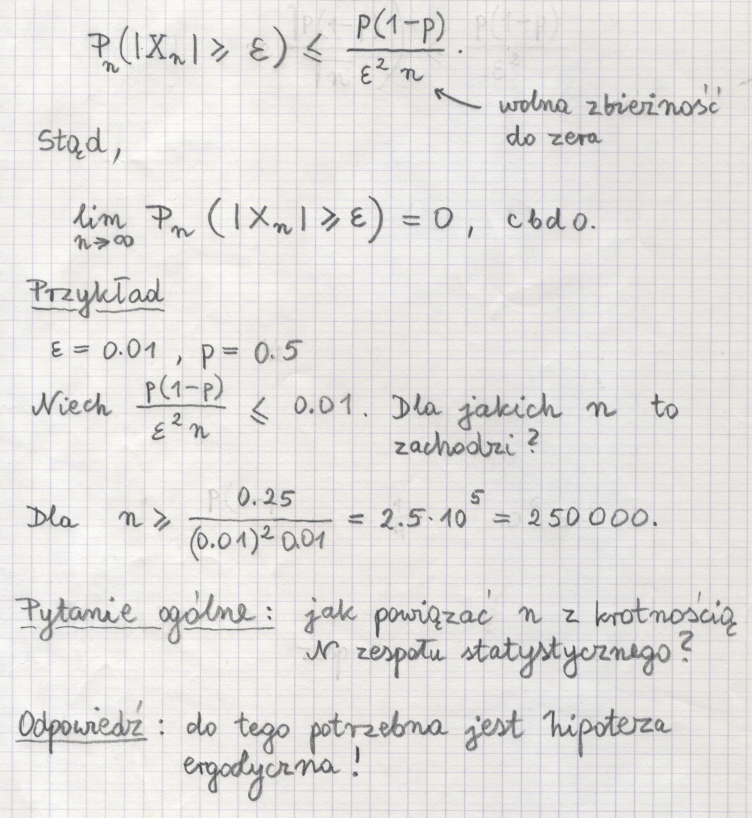 Pₙ(|Xₙ| ⩾ ε) ⩽ p(1-p) / ε² n .
wolna zbieżność
do zera
Stąd,
lim n→∞ Pₙ (|Xₙ| ⩾ ε) = 0, cbdo.
Przykład
ε = 0.01 , p = 0.5
Niech p(1-p) / ε² n ⩽ 0.01. Dla jakich n to
zachodzi?
Dla n ⩾ 0.25 / (0.01)² 0.01 = 2.5·10⁵ = 250 000.
Pytanie ogólne: jak powiązać n z krotnością
N zespołu statystycznego?
Odpowiedź: do tego potrzebna jest hipoteza
ergodyczna!